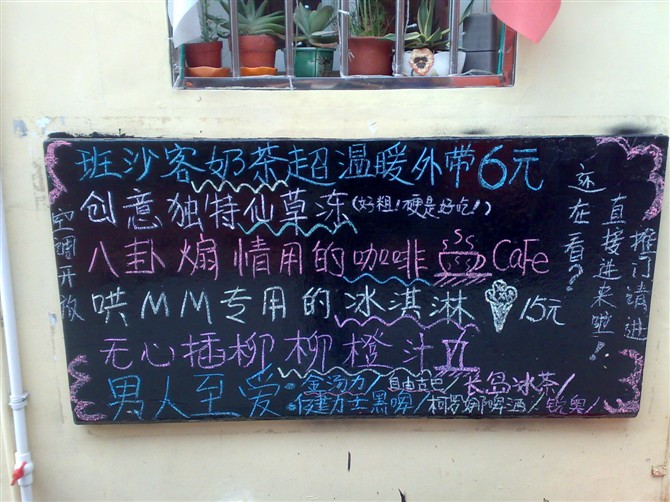 班沙客奶茶超温暖外带6元
创意独特仙草冻(好粗!硬是好吃!)
八卦煽情用的咖啡 CaFe
哄MM专用的冰淇淋 15元
无心插柳柳橙汁
男人至爱·金汤力/自由古巴/长岛冰茶/
·健力士黑啤/柯罗娜啤酒/锐奥/
空调开放
还在看?
直接进来啦!
推门请进